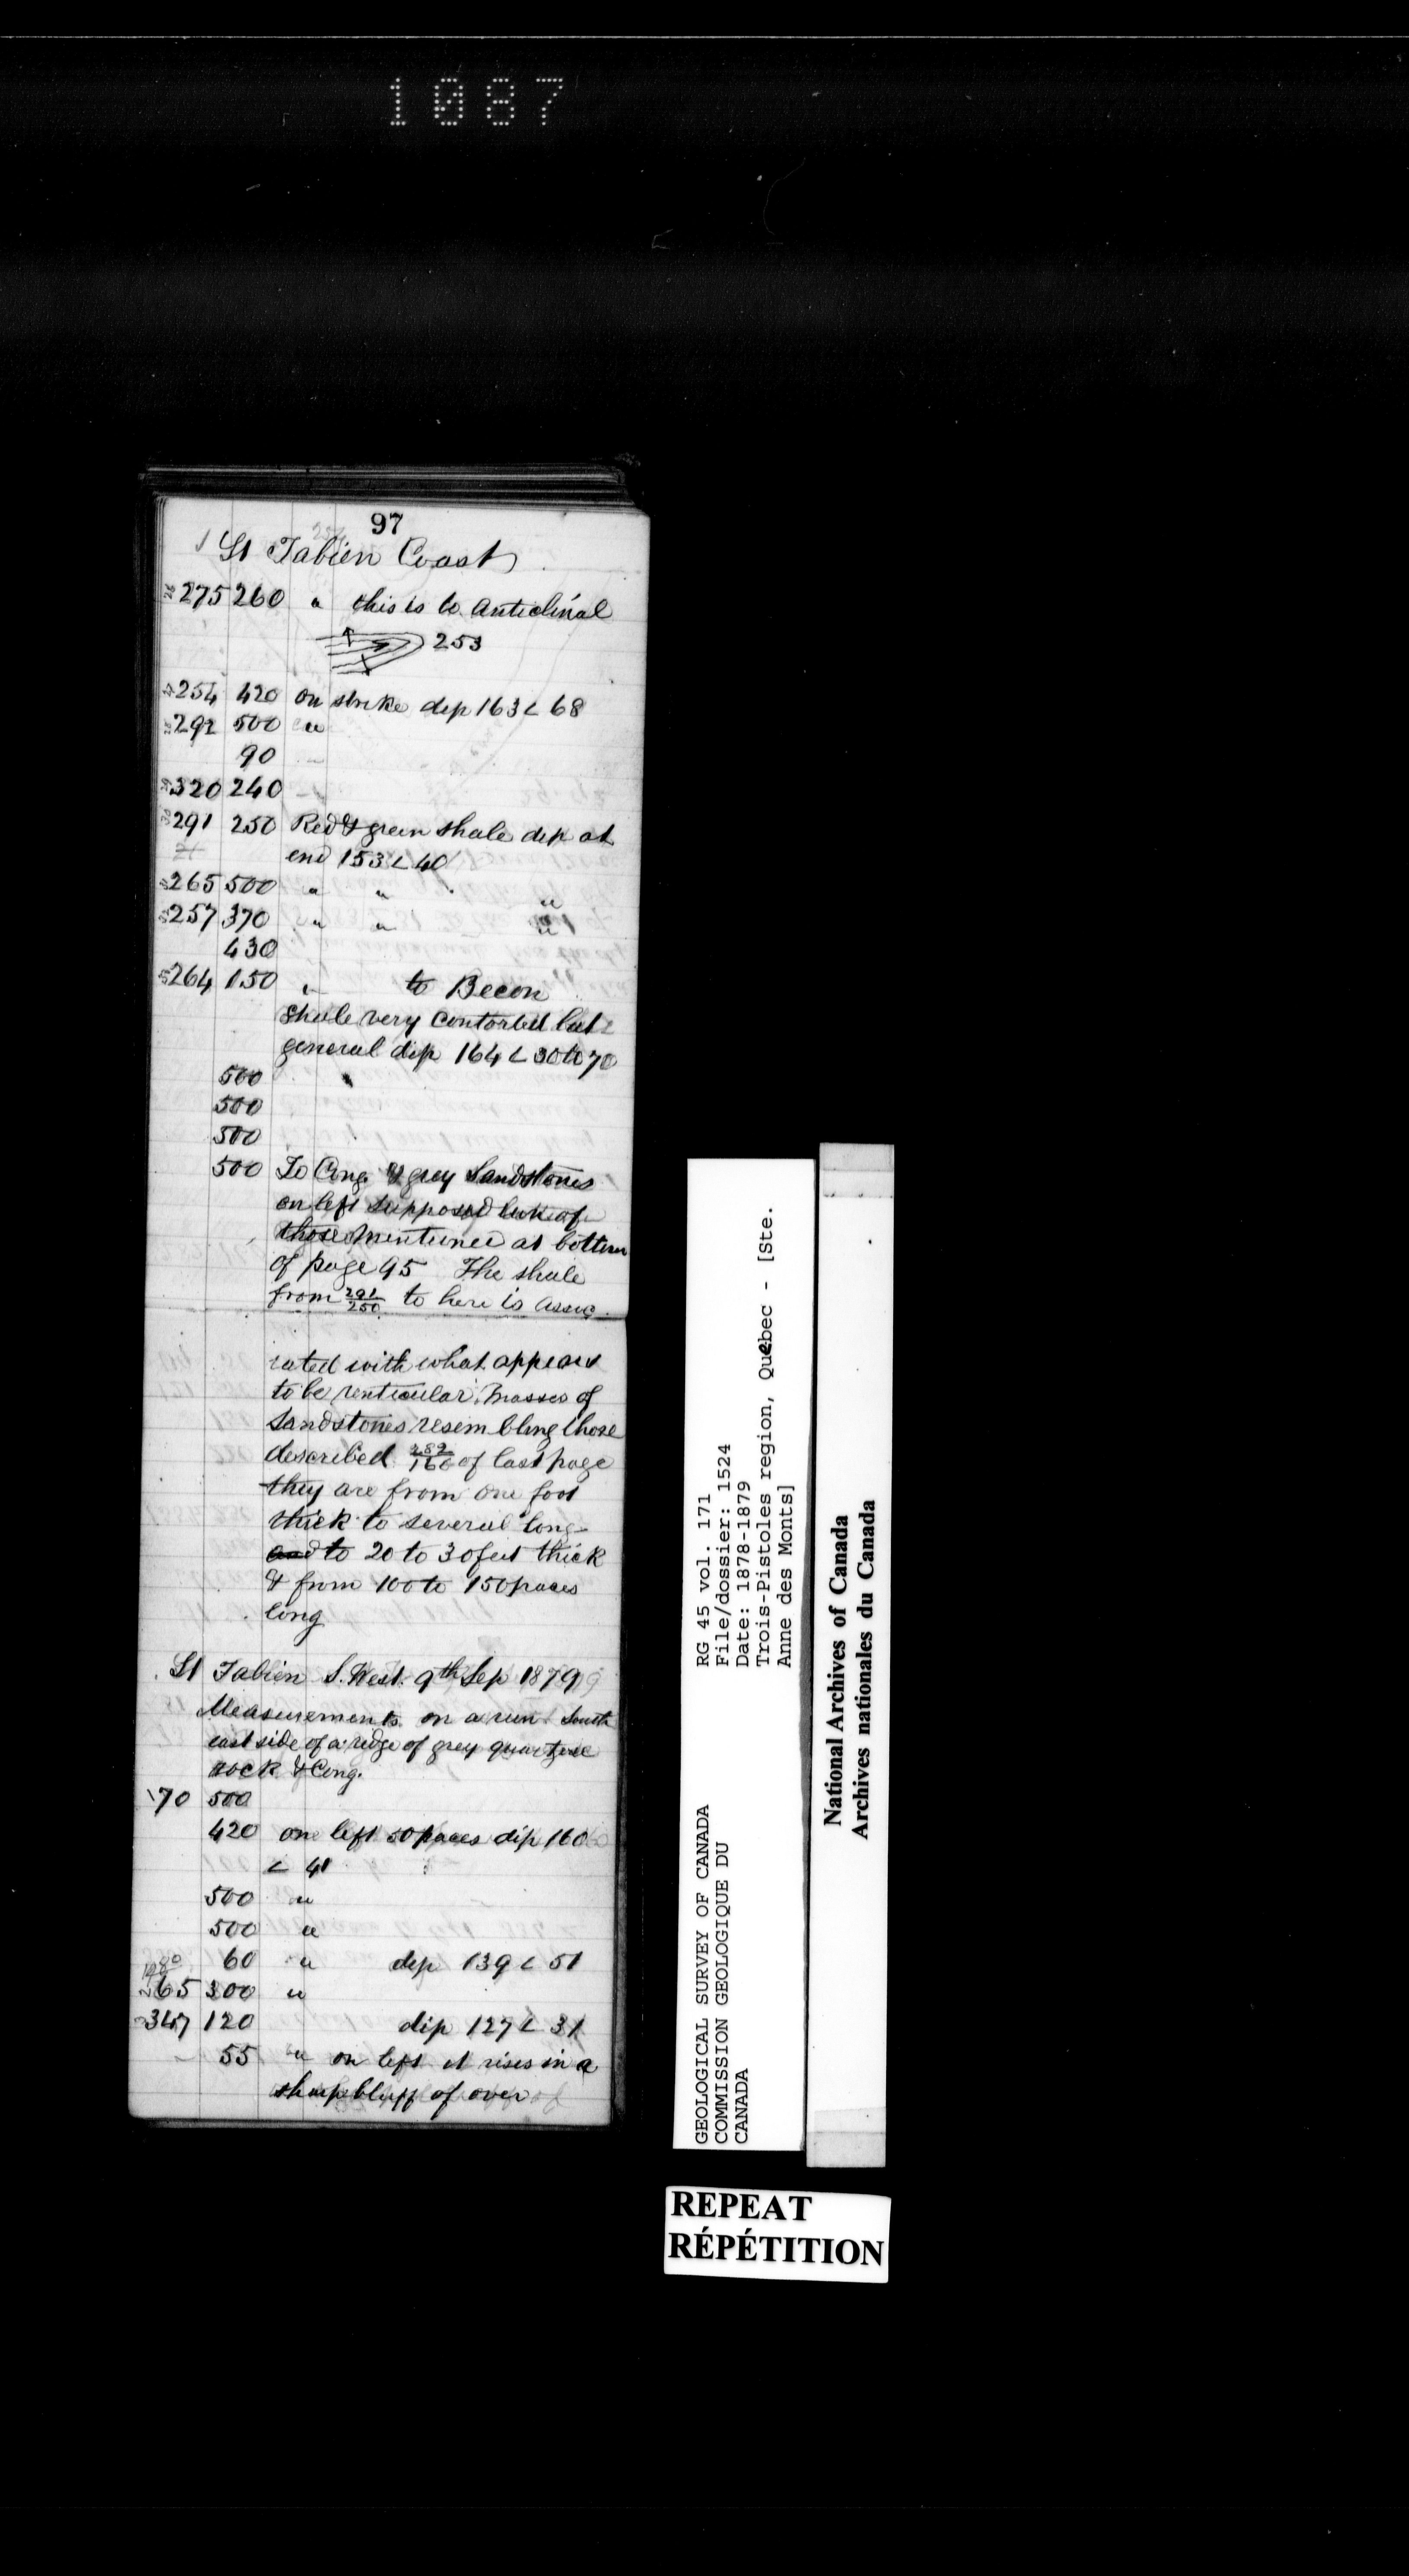 1087
97
St Fabien Coast
275 260 " this is to anticlinal
253
254 420 on strike dip 163 < 68
292 500 "
90
320 240
291 250 Red & green shale dip at
end 153 < 40
265 500 " " "
257 370 " " "
430
264 150 " to Becon
shale very contorted but
general dip 164 < 30 to 70
500
500
500
500 To Cong. & grey Sandstones
on left supposed
those mentioned at bottom
of page 95 The shale
from 291/250 to here is assoc
iated with what appears
to be lenticular masses of
Sandstones resembling those
described 289/160 of last page
they are from one foot
thick to several long
and to 20 to 30 feet thick
& from 100 to 150 paces
long
St Fabien S. West. 9th Sep 1879
Measurements on a run South
east side of a ridge of grey quartzose
rock & Cong.
70 500
420 one left 50 paces dip 160
< 41
500 "
500 "
60 " dip 139 < 51
265 300 "
347 120 dip 127 < 31
55 " on left it rises in a
sharp bluff of over
GEOLOGICAL SURVEY OF CANADA
COMMISSION GEOLOGIQUE DU
CANADA
RG 45 vol. 171
File/dossier: 1524
Date: 1878-1879
Trois-Pistoles region, Quebec - [Ste.
Anne des Monts]
National Archives of Canada
Archives nationales du Canada
REPEAT
RÉPÉTITION